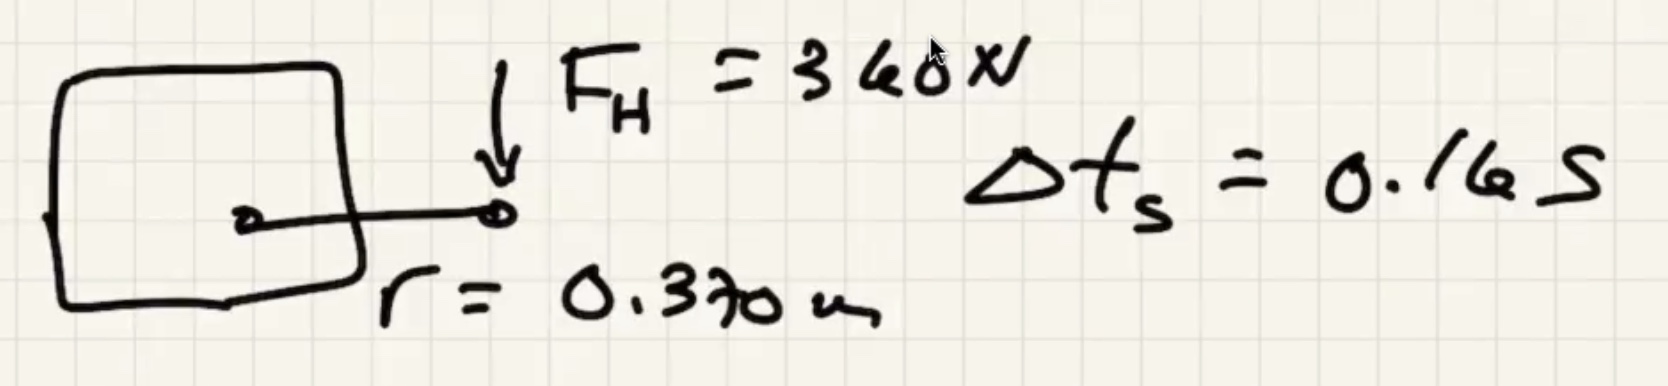 F_H = 360 N
Δt_s = 0.16 s
r = 0.370 m